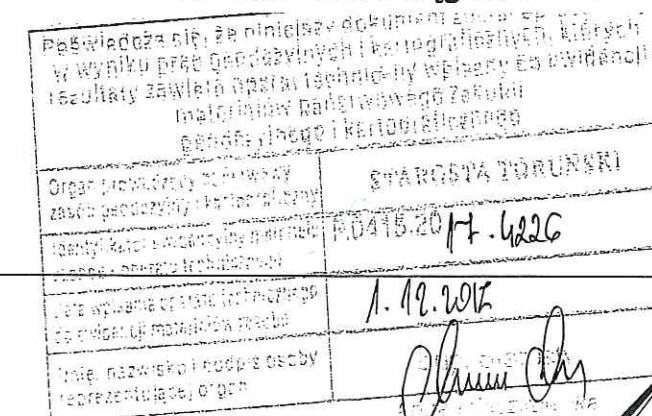 Poświadcza się, że niniejszy dokument
w wyniku prac geodezyjnych i kartograficznych, których
rezultaty zawiera operat techniczny wpisany do ewidencji
materiałów państwowego zasobu
geodezyjnego i kartograficznego
Organ prowadzący
zasób geodezyjny i kartograficzny
STAROSTA TORUŃSKI
Identyfikator ewidencyjny materiału
zasobu operatu technicznego
P.0415.2017.4226
Data wpisania operatu technicznego
do ewidencji materiałów zasobu
1.12.2017
Imię, nazwisko i podpis osoby
reprezentującej organ